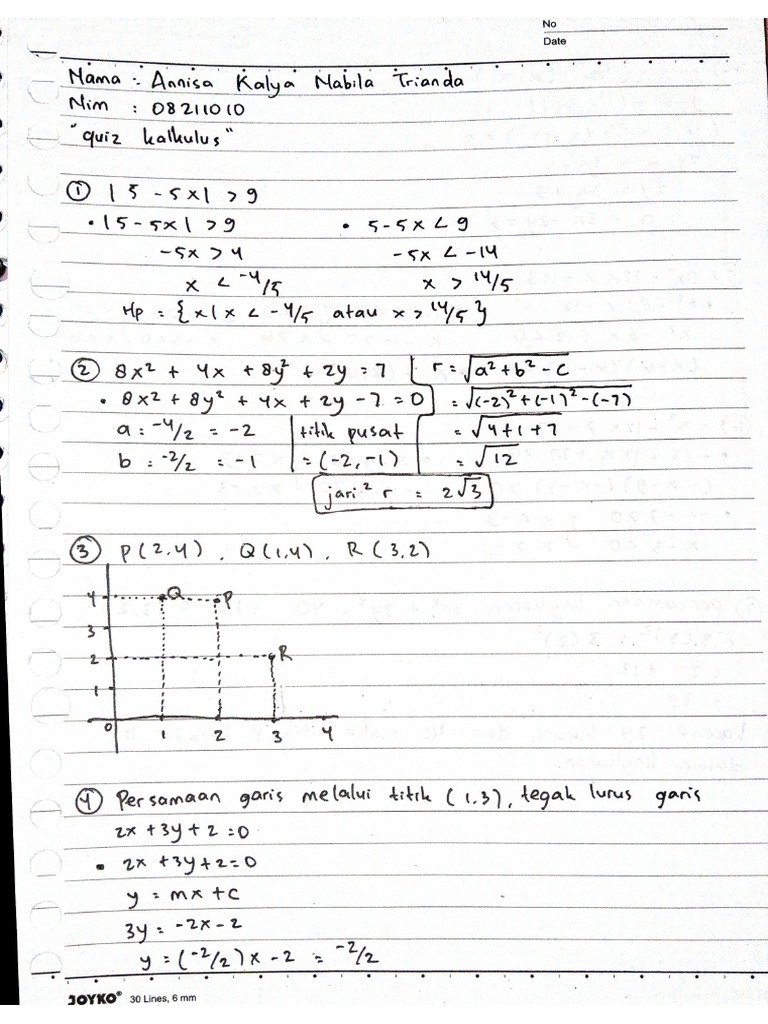 No
Date
Nama : Annisa Kalya Nabila Trianda
Nim : 08211010
"quiz kalkulus"
① |5 - 5x| > 9
• |5 - 5x| > 9 • 5-5x < 9
-5x > 4 -5x < -14
x < -4/5 x > 14/5
Hp = {x|x < -4/5 atau x > 14/5}
② 8x² + 4x + 8y² + 2y = 7 r = √a² + b² - c
• 8x² + 8y² + 4x + 2y - 7 = 0 = √(-2)² + (-1)² - (-7)
a : -4/2 = -2 titik pusat = √4 + 1 + 7
b : -2/2 = -1 = (-2, -1) = √12
jari² r = 2√3
③ P(2,4), Q(1,4), R(3,2)
4 Q P
3
2 R
1
0 1 2 3 4
④ Persamaan garis melalui titik (1.3), tegak lurus garis
2x + 3y + 2 = 0
• 2x + 3y + 2 = 0
y = mx + c
3y = -2x - 2
y = (-2/2)x - 2 = -2/2
JOYKO® 30 Lines, 6 mm